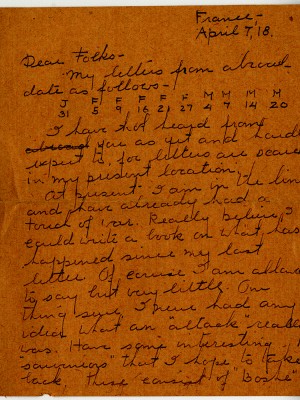 France,-
April 7, 18.
Dear Folks-
My letters from abroad
date as follows-
J F F F F F M M M M
31 5 9 16 21 27 4 7 14 20
I have not heard from
you as yet and hardly
expect to, for letters are scarce
in my present location.
At present I am in the line
and have already had a
touch of war. Really believe I
could write a book on what has
happened since my last
letter. Of course I am allowed
to say but very little. One
thing sure, I never had any
idea what an "attack" really
was. Have some interesting
"souveniers" that I hope to take
back, these consist of "Boshe"